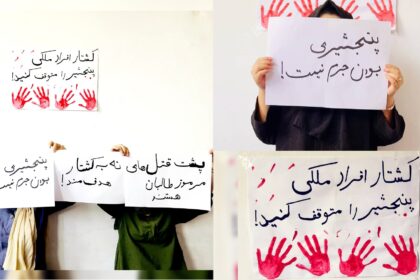 کشتار افراد ملکی
پنجشیر را متوقف کنید!
پنجشیری
بودن جرم نیست!
پنجشیری
بودن جرم نیس
نه به کشتار
هدف مند!
پشت قتل‌های
مرموز طالبان
هستند
کشتار افراد ملکی
پنجشیر را متوقف کنید!